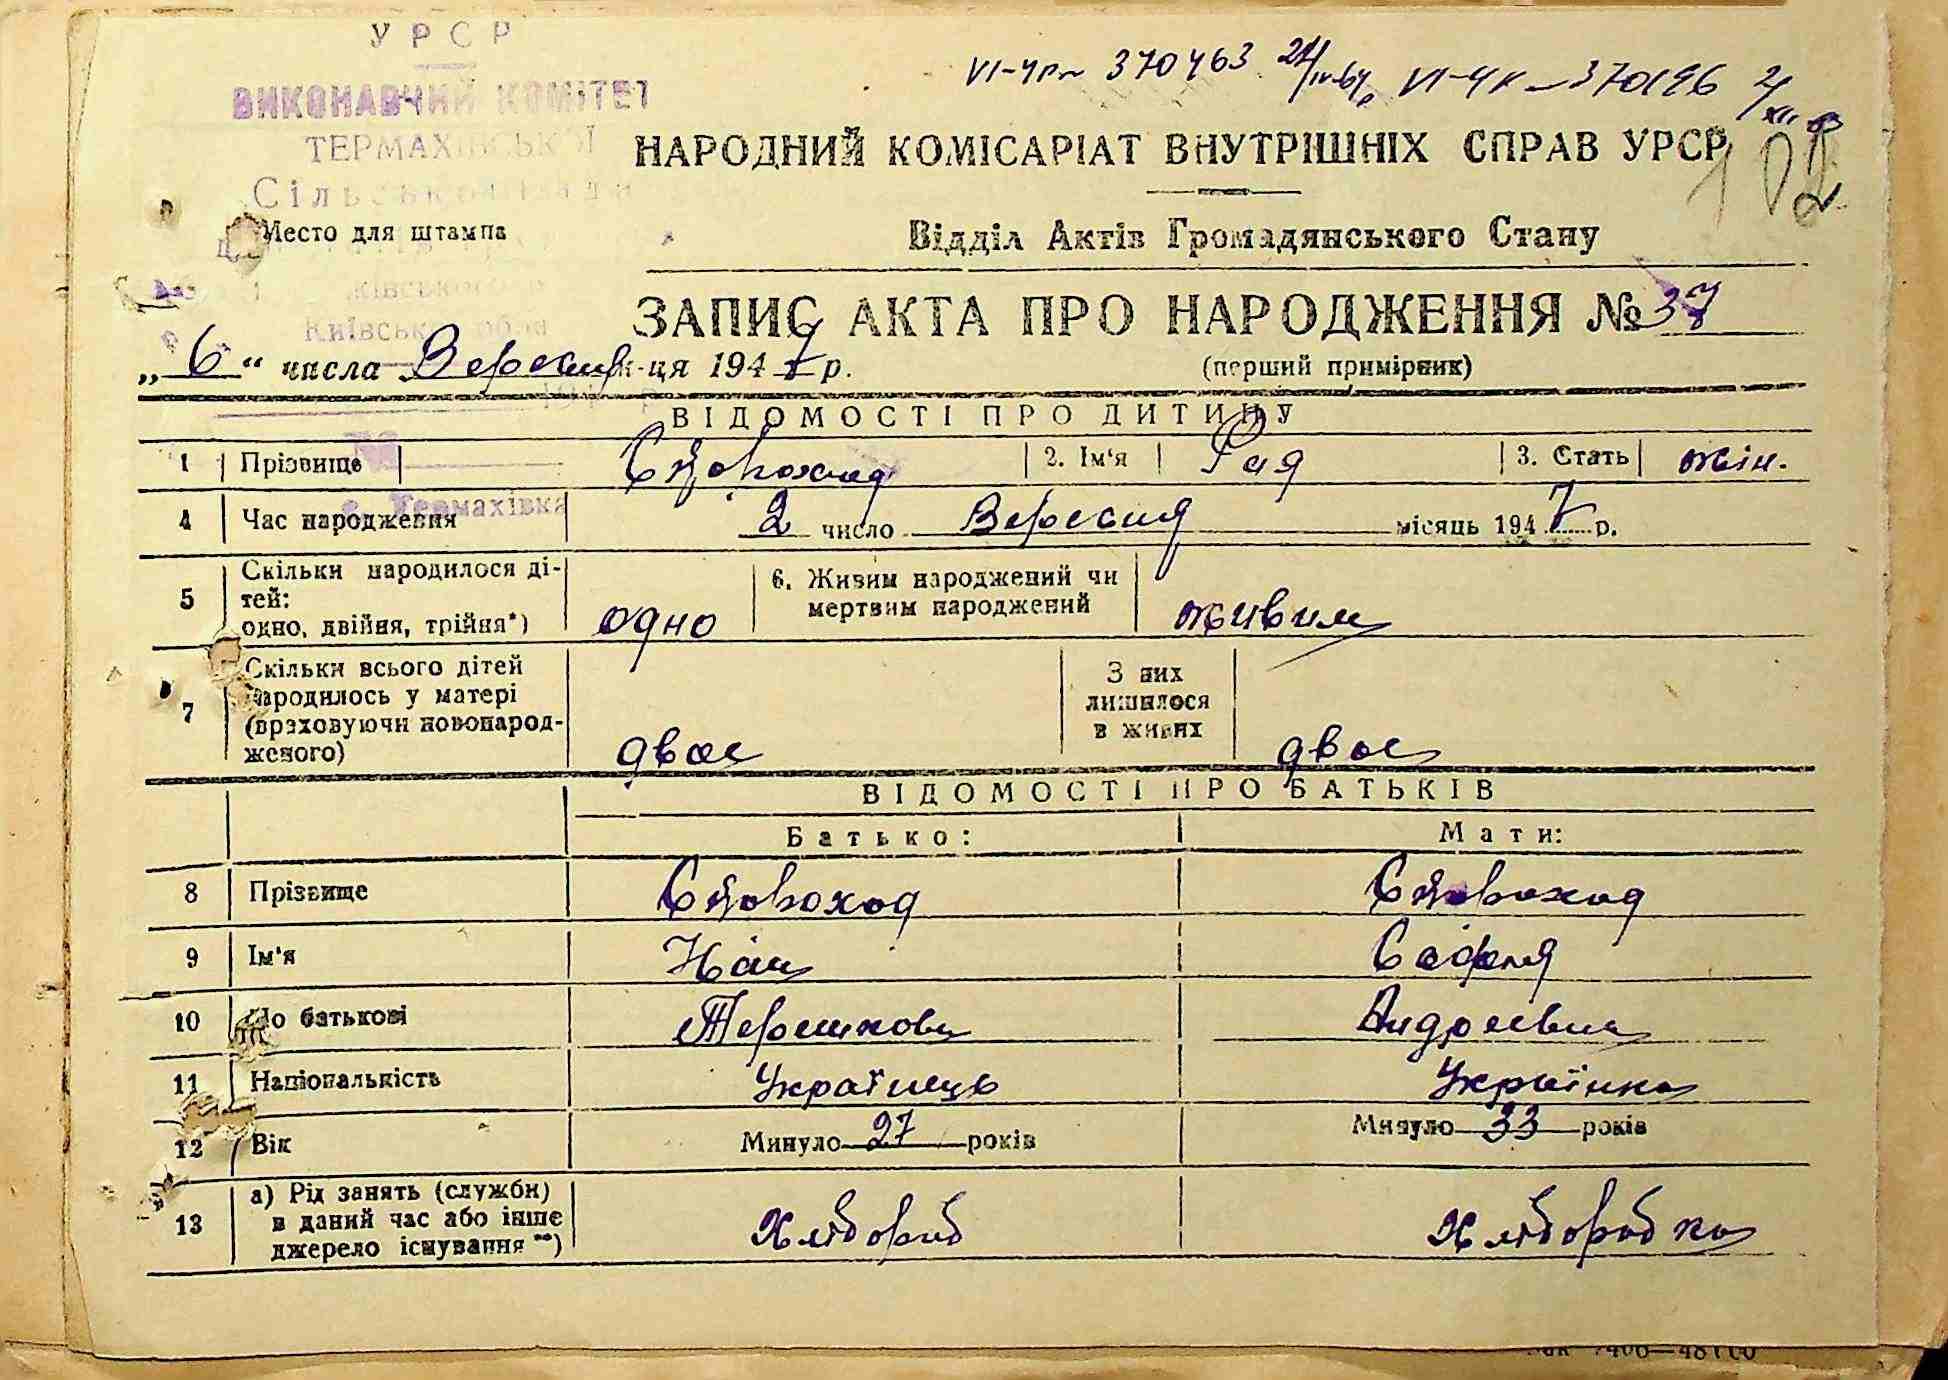 УРСР
ВИКОНАВЧИЙ КОМІТЕТ
ТЕРМАХІВСЬКОЇ
Сільської Ради
Место для штампа
Київської обл.
с. Термахівка
VI-ЧР № 370463
VI-ЧК № 370196
102
НАРОДНИЙ КОМІСАРІАТ ВНУТРІШНІХ СПРАВ УРСР
Відділ Актів Громадянського Стану
ЗАПИС АКТА ПРО НАРОДЖЕННЯ № 37
„6“ числа Вересня м-ця 1947 р. (перший примірник)
ВІДОМОСТІ ПРО ДИТИНУ
1 Прізвище Скороход 2. Ім'я Рая 3. Стать жін.
4 Час народження 2 число Вересня місяць 1947 р.
5 Скільки народилося ді-
тей:
одно, двійня, трійня*) одно 6. Живим народжений чи
мертвим народжений живим
7 Скільки всього дітей
народилось у матері
(враховуючи новонарод-
женого) двоє З них
лишилося
в живих двоє
ВІДОМОСТІ ПРО БАТЬКІВ
Батько: Мати:
8 Прізвище Скороход Скороход
9 Ім'я Іван Софія
10 По батькові Андреевна
11 Національність Українець Українка
12 Вік Минуло 27 років Минуло 33 років
13 а) Рід занять (служби)
в даний час або інше
джерело існування **) Хлібороб Хліборобка